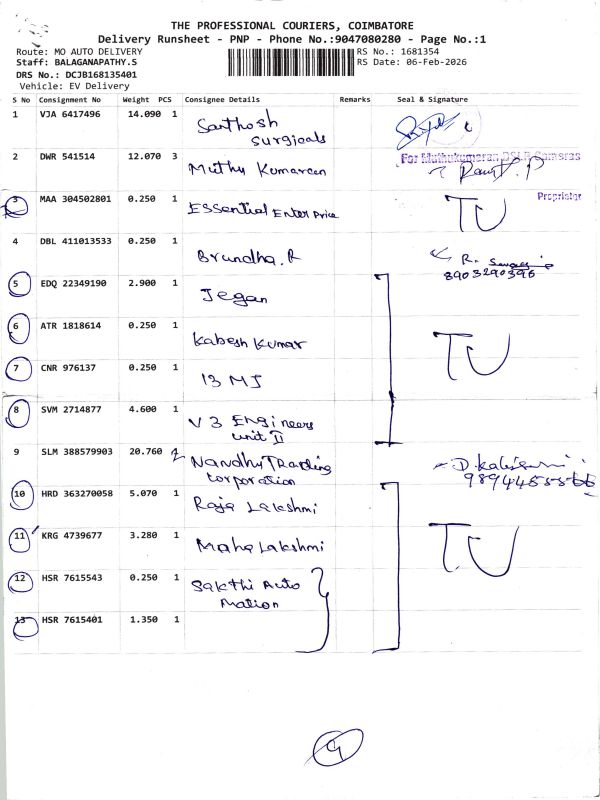 THE PROFESSIONAL COURIERS, COIMBATORE
Delivery Runsheet - PNP - Phone No.:9047080280 - Page No.:1
Route: MO AUTO DELIVERY
Staff: BALAGANAPATHY.S
DRS No.: DCJB168135401
Vehicle: EV Delivery
RS No.: 1681354
RS Date: 06-Feb-2026
S No Consignment No Weight PCS Consignee Details Remarks Seal & Signature
1 VJA 6417496 14.090 1 Santhosh
surgicals
2 DWR 541514 12.070 3 Muthu Kumaran
For Muthukumaran DSLR Cameras
Proprietor
3 MAA 304502801 0.250 1 Essential Enter Price TU
4 DBL 411013533 0.250 1 Brundha.R R.
8903290396
5 EDQ 22349190 2.900 1 Jegan
6 ATR 1818614 0.250 1 Kabesh Kumar TU
7 CNR 976137 0.250 1 13 MJ
8 SVM 2714877 4.600 1 V 3 Engineers
unit II
9 SLM 388579903 20.760 Nandhy Trading
Corporation
10 HRD 363270058 5.070 1 Raja Lakshmi
11 KRG 4739677 3.280 1 Maha Lakshmi TU
12 HSR 7615543 0.250 1 Sakthi Auto
Mation
13 HSR 7615401 1.350 1
9